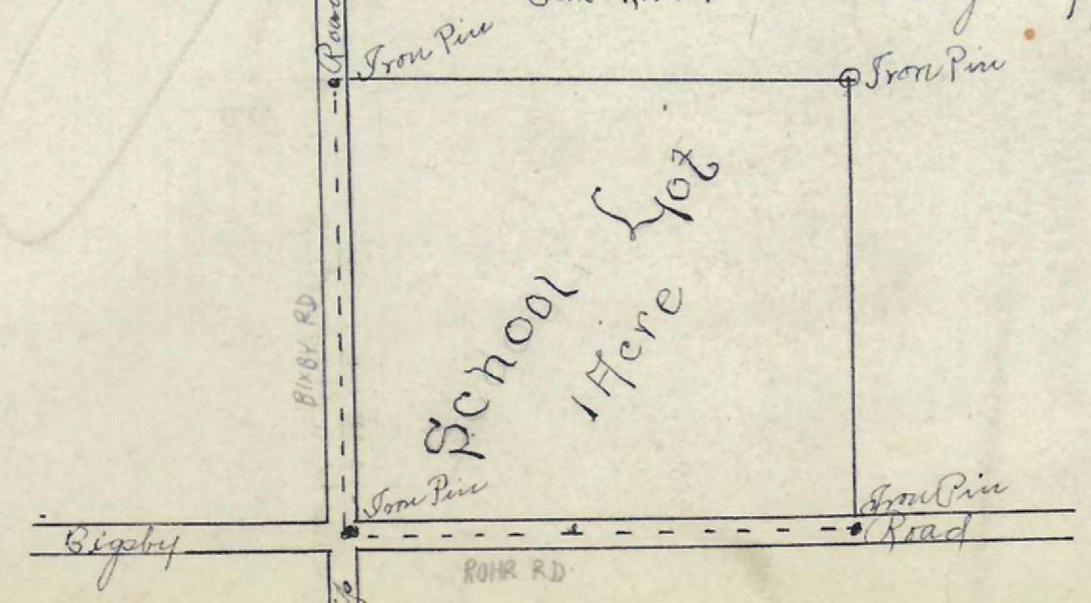 Road
Iron Pin
Iron Pin
School Lot
1 Acre
BIXBY RD
Iron Pin
Iron Pin
Bigsby
Road
ROHR RD.